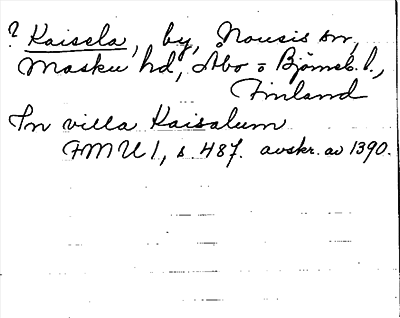 ? Kaisela, by, Nousis sn,
Masku hd, Åbo o Björneb. l.,
Finland
In villa Kaisalum
FMU 1, s 487. avskr. av 1390.